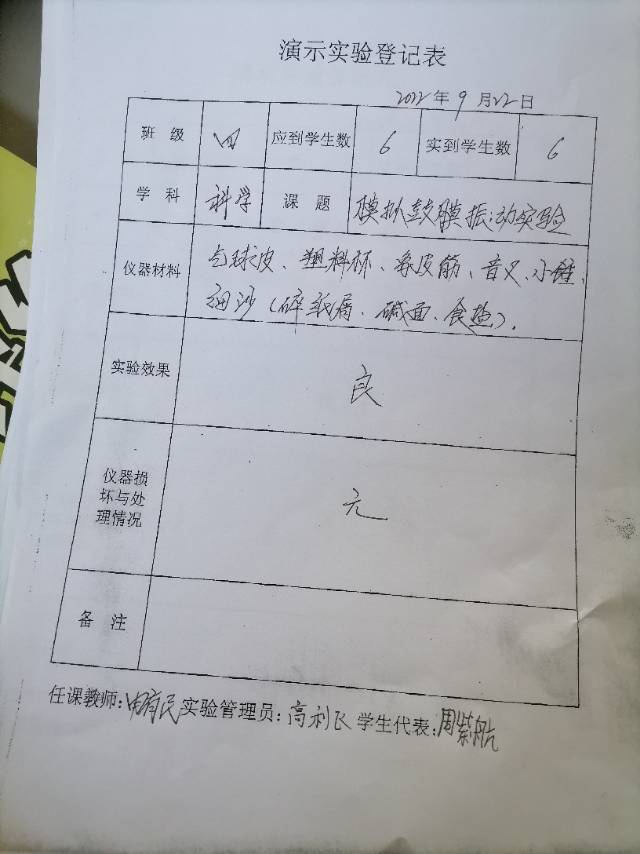 演示实验登记表
2022年9月22日
班 级 四 应到学生数 6 实到学生数 6
学 科 科学 课 题 模拟鼓膜振动实验
仪器材料 气球皮、塑料杯、橡皮筋、音叉、小锤、
细沙(碎纸屑、碱面、食盐).
实验效果 良
仪器损
坏与处
理情况
无
备 注
任课教师: 实验管理员:高利飞 学生代表:周紫航